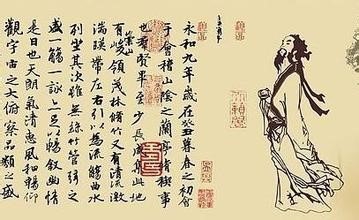 永和九年歲在癸丑暮春之初會
于會稽山陰之蘭亭脩稧事
也羣賢畢至少長咸集此地
有崇山峻領茂林脩竹又有清流激
湍暎帶左右引以為流觴曲水
列坐其次雖無絲竹管弦之
盛一觴一詠亦足以暢敘幽情
是日也天朗氣清惠風和暢仰
觀宇宙之大俯察品類之盛